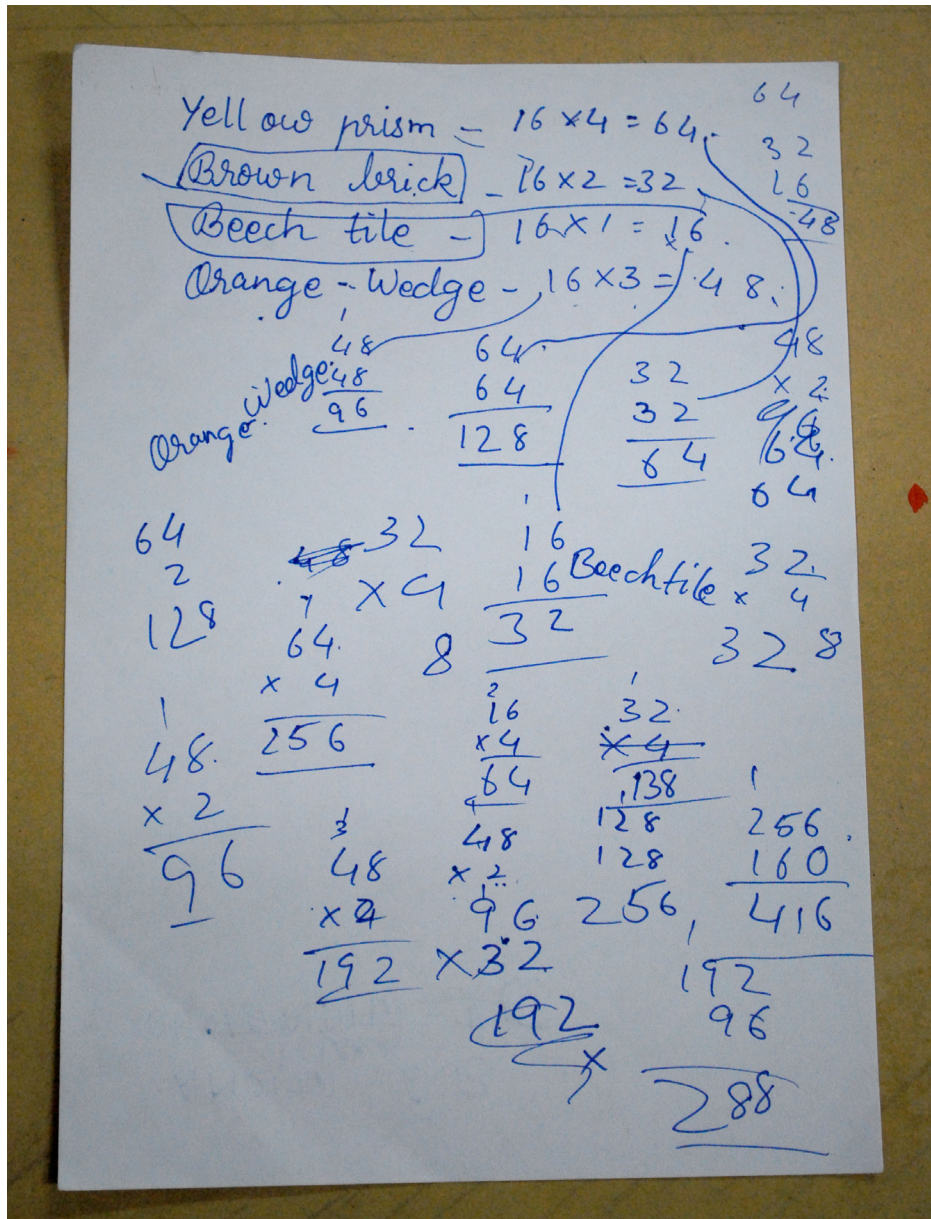 Yellow prism - 16 × 4 = 64.
Brown brick - 16 × 2 = 32
Beech tile - 16 × 1 = 16.
Orange - Wedge - 16 × 3 = 48.
64
32
16
48
Orange Wedge.
1
48
48
96
64
64
128
32
32
64
48
× 2
64
64
64
2
128
32
× 4
8
1
16
16 Beech tile
32
32
× 4
328
1
64
× 4
256
1
48.
× 2
96
2
16
×4
64
1
32
×4
138
128
128
256
3
48
×4
192
48
× 2
96
×32
192
×
1
256
160
416
1
192
96
288